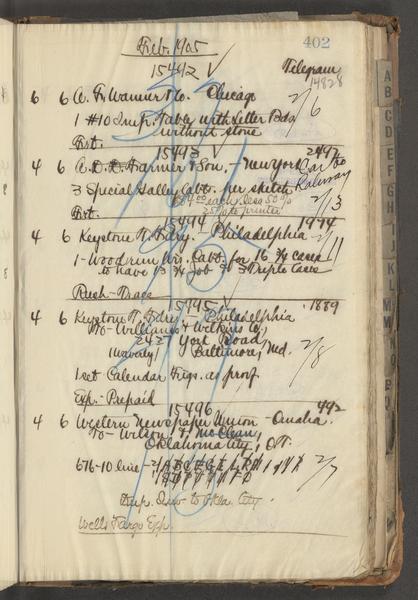 Feb. 1905
402
15492
Telegram
14828
6 6 A. F. Wanner & Co. Chicago
2/6
1 #10 Imp. Table with Letter Bds
without stone
Frt.
15493 2492
4 6 A. D. Farmer & Son, - New York
Car to
Railway
3 Special Galley Cabs. per sketch
$14.00 each less 50%
25% to printer
2/3
Frt.
15494 1974
4 6 Keystone T. Fdry. Philadelphia
2/11
1 - Wood run Wis. Cabt. for 16 3/4 Cases
to have 13 3/4 Job & 3 Triple Cases
Rush -
15495 1889
4 6 Keystone T. Fdry. - Philadelphia
To - Williams & Wilkins Co,
2427 York Road,
(Waverly) Baltimore, Md.
2/8
1 set Calendar Figs. as proof
Exp. - Prepaid
15496 492
4 6 Western Newspaper Union - Omaha.
To - Wilson & McClean,
Oklahoma City, O.T.
2/7
676-10 line -
Imp. Inv. to Okla. City.
Wells Fargo Exp.
A
B
C
D
E
F
G
H
I
J
K
L
M